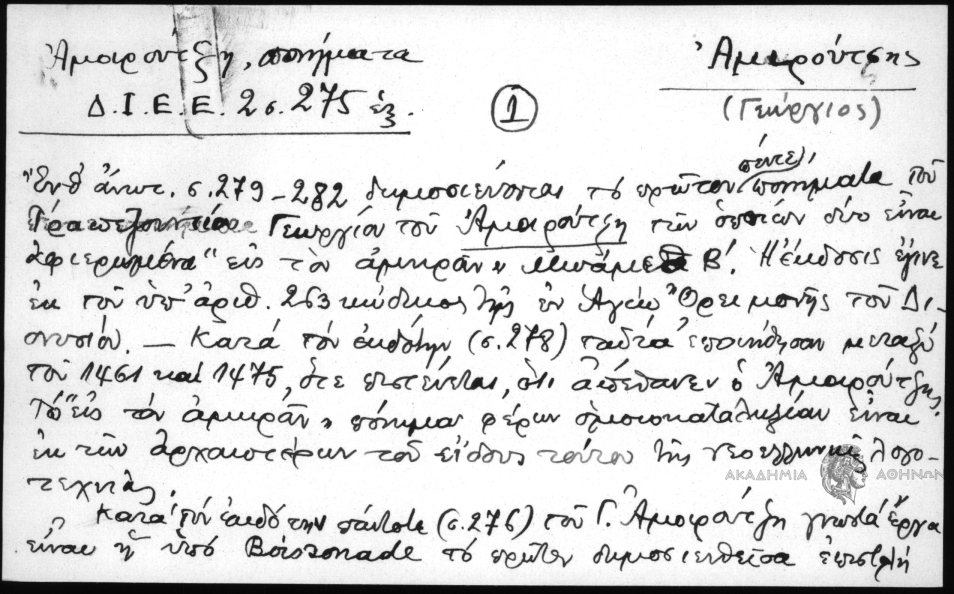 Ἀμοιρούτζη, ποιήματα
Ἀμιρούτσης
Δ.Ι.Ε.Ε. 2 σ. 275 ἑξ.
1
(Γεώργιος)
Ἔνθ' ἀνωτ. σ. 279-282 δημοσιεύονται τό πρῶτον πέντε ποιήματα τοῦ
Τραπεζουντίου Γεωργίου τοῦ Ἀμοιρούτζη τῶν ὁποίων δύο εἶναι
ἀφιερωμένα "εἰς τὸν ἀμηρᾶν" Β'. Ἡ ἔκδοσις ἔγινε
ἐκ τοῦ ὑπ' ἀριθ. 263 κώδικος τῆς ἐν Ἁγίῳ Ὄρει μονῆς τοῦ Δι-
ονυσίου. — Κατά τόν ἐκδότην (σ. 278) ταῦτα ἐποιήθησαν μεταξύ
τοῦ 1461 καί 1475, ὅτε πιστεύεται, ὅτι ἀπέθανεν ὁ Ἀμοιρούτζης.
Τό "εἰς τόν ἀμηρᾶν" ποίημα φέρων ὁμοιοκαταληξίαν εἶναι
ἐκ τῶν ἀρχαιοτέρων τοῦ εἴδους τούτου τῆς νεοελληνικῆς λογο-
τεχνίας.
ΑΚΑΔΗΜΙΑ ΑΘΗΝΩΝ
Κατά τόν ἐκδότην πάντοτε (σ. 276) τοῦ Γ. Ἀμοιρούτζη γνωστά ἔργα
εἶναι ἡ ὑπό Boissonade τό πρῶτον δημοσιευθεῖσα ἐπιστολή